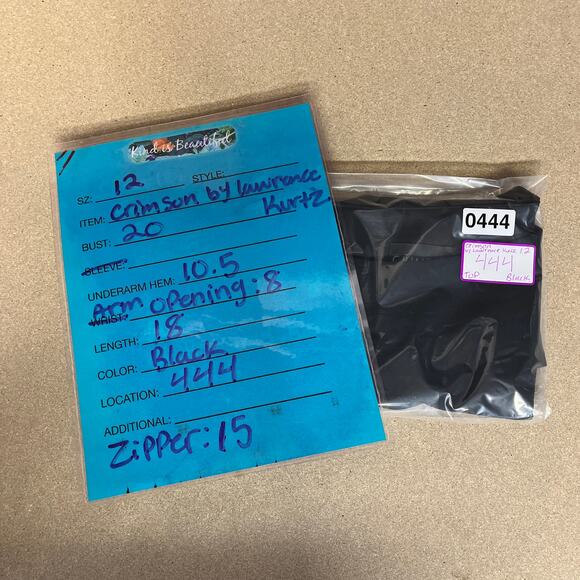 Kind is Beautiful
SZ: 12 STYLE:
ITEM: Crimson by Lawrence
Kurtz
BUST: 20
SLEEVE:
UNDERARM HEM: 10.5
WRIST: Arm opening: 8
LENGTH: 18
COLOR: Black
LOCATION: 444
ADDITIONAL:
Zipper: 15
0444
Crimson
by Lawrence Kurtz 12
444
TOP Black